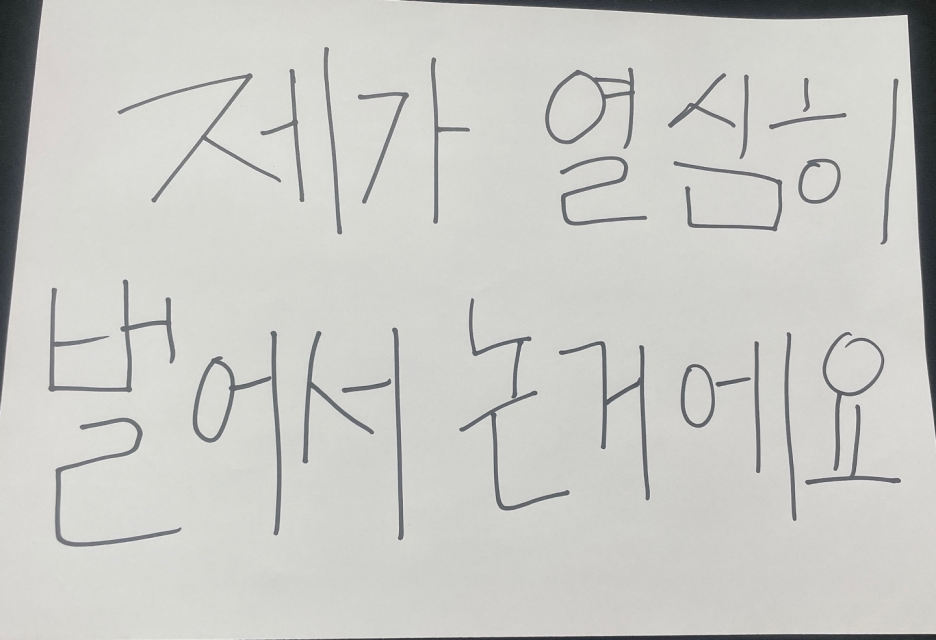 제가 열심히
벌어서 논거에요